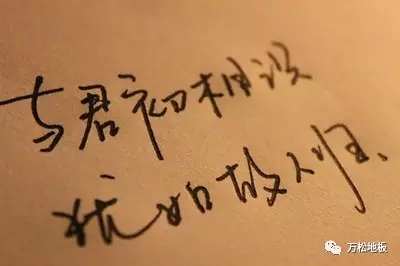 与君初相识
犹如故人归、
万松地板